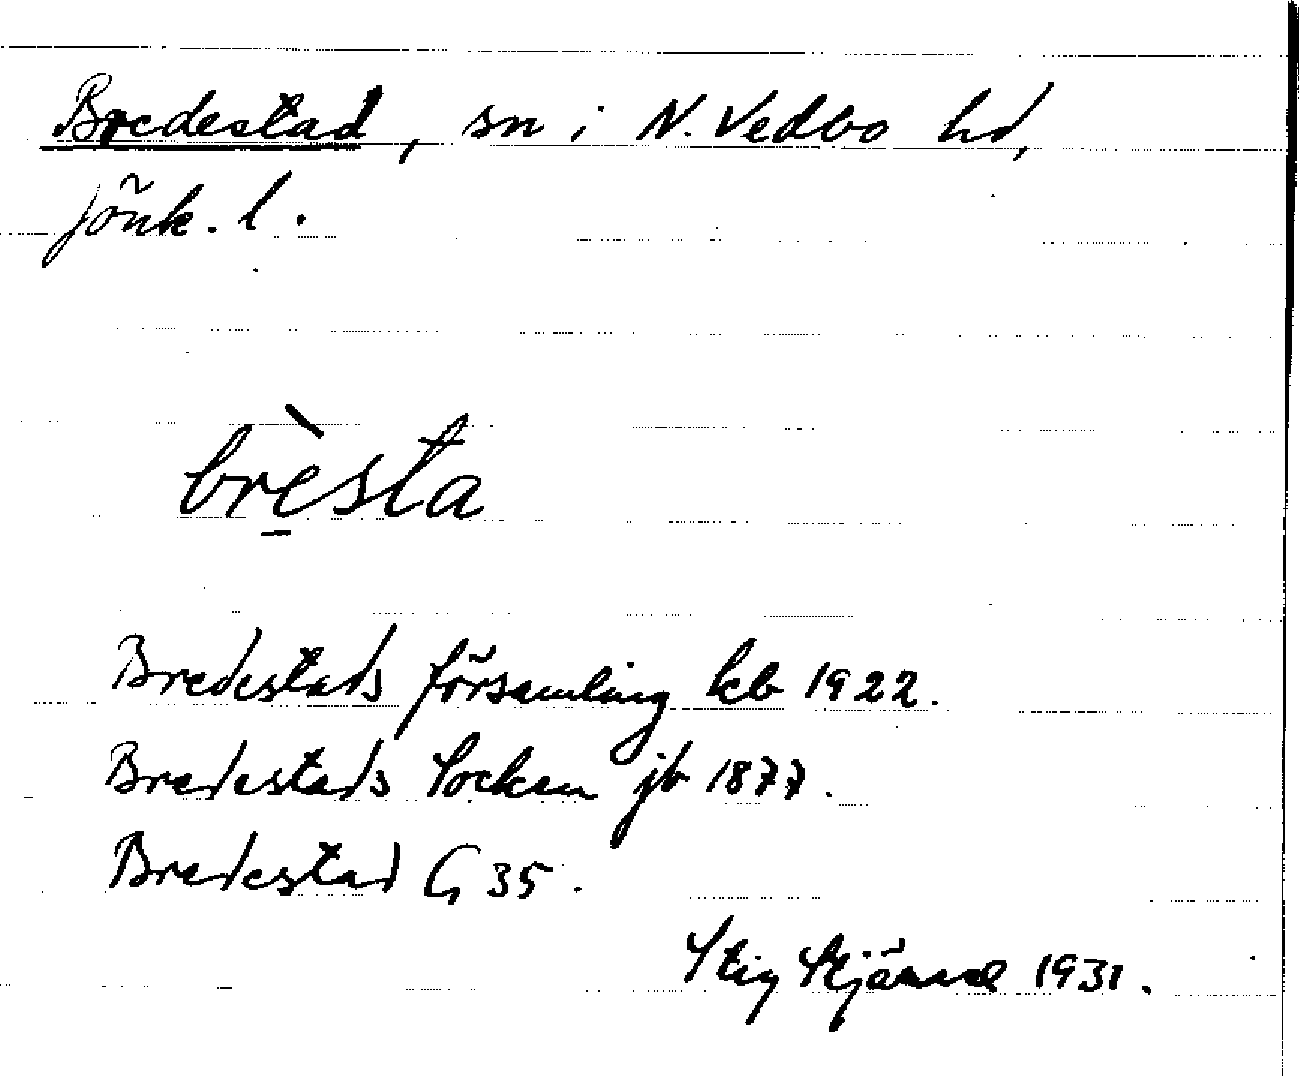 Bredestad, sn i N. Vedbo hd,
Jönk. l.
brèsta
Bredestads församling kb 1922.
Bredestads Socken jb 1877.
Bredestad G 35.
Stig 1931.